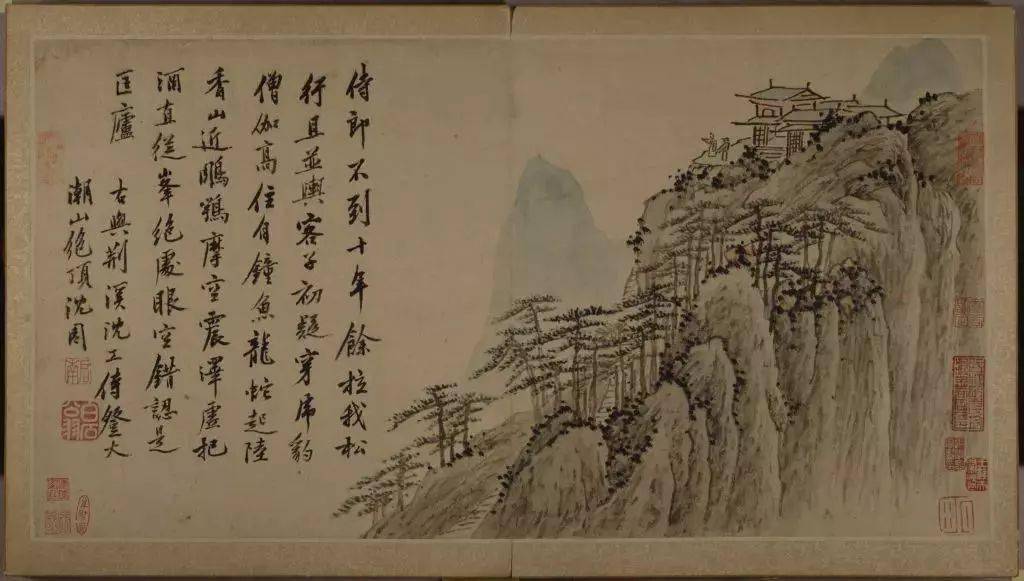 侍郎不到十年餘拉我松
行且並輿客子初疑穿虎豹
僧伽高住自鐘魚龍蛇起陸
香山近鵰鶚摩空震澤虛把
酒直從峯絕處眼空錯認是
匡廬
古與荊溪沈工侍登大
潮山絕頂沈周
啟南
白石翁